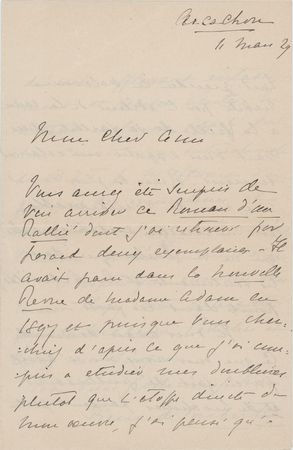 Arcachon
11 Mars 29
Mon cher ami
Vous aurez été surpris de
voir arriver ce Roman d'un
Rallié dont j'ai retrouvé par
hasard deux exemplaires. Il
avait paru dans la nouvelle
Revue de madame Adam en
1897 et puisque vous cher-
-chiez d'après ce que j'ai com-
-pris à étudier mes
plutôt que l'étoffe directe de
mon œuvre, j'ai pensé qu'